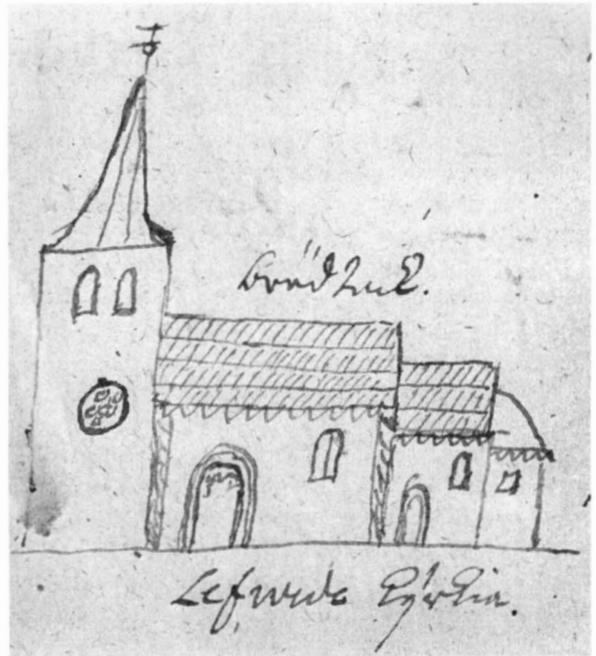 brädtack.
Lefwede kyrkia.